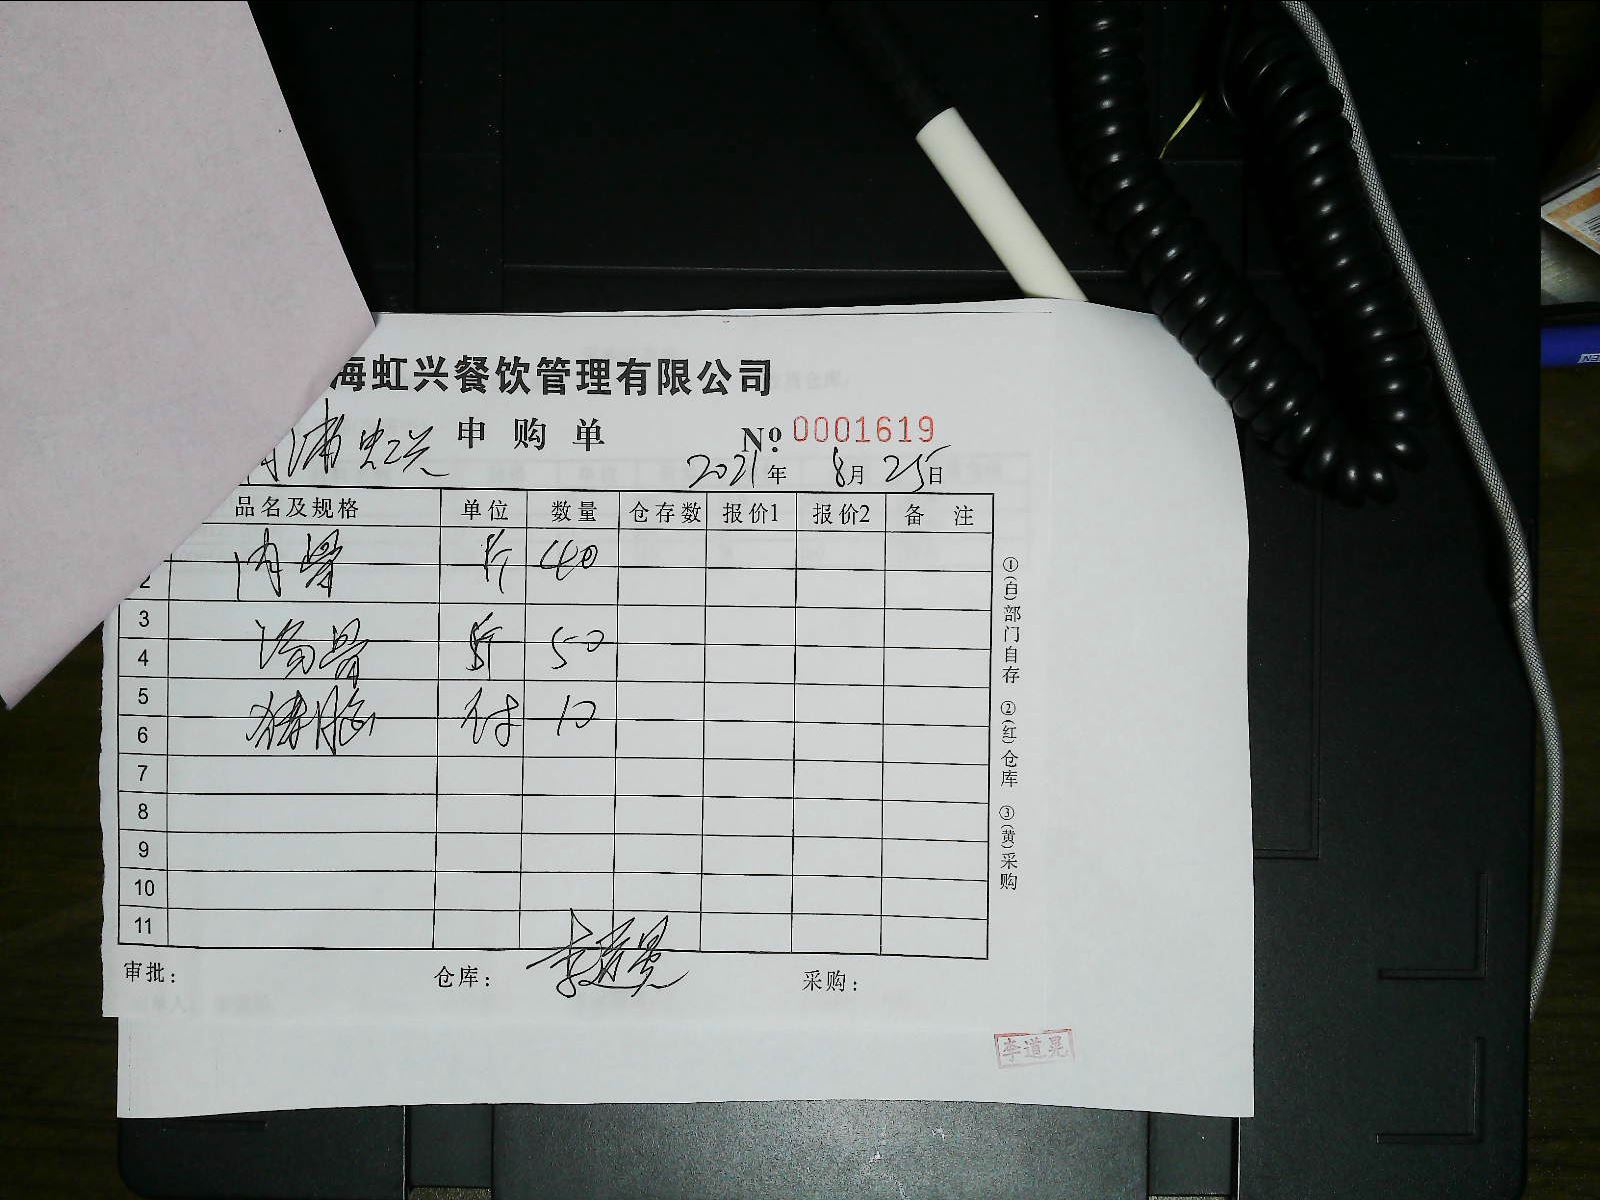 海虹兴餐饮管理有限公司
浦虹兴 申购单 № 0001619
2021年 8月 25日
品名及规格 单位 数量 仓存数 报价1 报价2 备 注
肉骨 斤 40
2
3
汤骨 斤 50
4
5
猪脑 付 10
6
7
8
9
10
11
审批： 仓库： 李道晃 采购：
①(白)部门自存 ②(红)仓库 ③(黄)采购
李道晃